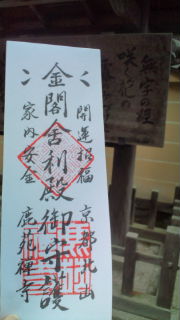 開運招福
京都北山
金閣舎利殿御守護
家内安全
鹿苑禅寺
無字の経
咲く花の